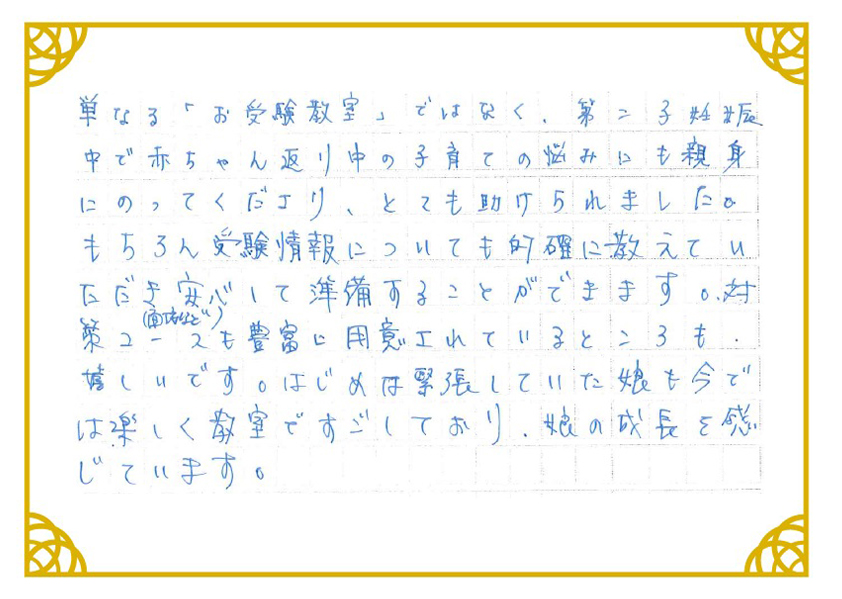 単なる「お受験教室」ではなく、第二子妊娠
中で赤ちゃん返り中の子育ての悩みにも親身
にのってくださり、とても助けられました。
もちろん受験情報についても的確に教えてい
ただき安心して準備することができます。対
策コース(面接など)も豊富に用意されているところも、
嬉しいです。はじめは緊張していた娘も今で
は楽しく教室ですごしており、娘の成長を感
じています。